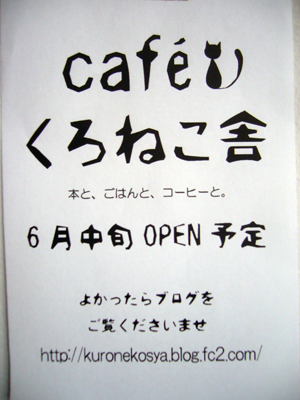 café
くろねこ舎
本と、ごはんと、コーヒーと。
6月中旬 OPEN 予定
よかったらブログを
ご覧くださいませ
http://kuronekosya.blog.fc2.com/